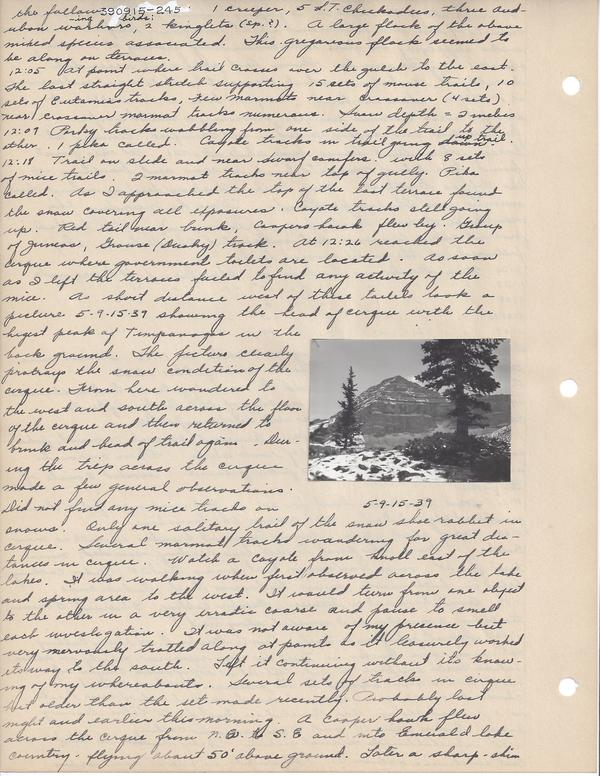 390915-245
the following birds: 1 creeper, 5 S.T. Chickadees, three Aud-
ubon warblers, 2 kinglets (sp.?). A large flock of the above
mixed species associated. This gregarious flock seemed to
be along on terraces.
12:05 At point where trail crosses over the gulch to the east.
The last straight stretch supporting 15 sets of mouse trails, 10
sets of Eutamias tracks, few marmots near crossover (4 sets)
near crossover marmot tracks numerous. Snow depth = 2 inches
12:09 Porky tracks wabbling from one side of the trail to the
other. 1 pika called. Coyote tracks in trail going up trail.
12:18 Trail on slide and near dwarf conifers. with 8 sets
of mice trails. 2 marmot tracks near top of gully. Pika
called. As I approached the top of the last terrace found
the snow covering all exposures. Coyote tracks still going
up. Red tail near brink, Coopers hawk flew by. Group
of Juncos, Grouse (Dusky) track. At 12:26 reached the
cirque where government toilets are located. As soon
as I left the terraces failed to find any activity of the
mice. A short distance west of these toilets took a
picture 5-9-15-39 showing the head of cirque with the
higest peak of Timpanogos in the
back ground. The picture clearly
protrays the snow condition of the
cirque. From here wandered to
the west and south across the floor
of the cirque and then returned to
brink and head of trail again. Dur-
ing the trip across the cirque
made a few general observations.
Did not find any mice tracks on
5-9-15-39
snows. Only one solitary trail of the snow shoe rabbit in
cirque. Several marmot tracks wandering for great dis-
tances in cirque. Watch a Coyote from knoll east of the
lakes. It was walking when first observed across the lake
and spring area to the west. It would turn from one object
to the other in a very erratic coarse and pause to smell
each investigation. It was not aware of my presence but
very nervously trotted along at points as it leasurely worked
its way to the south. Left it continuing without its know-
ing of my whereabouts. Several sets of tracks in cirque
but older than the set made recently. Probably last
night and earlier this morning. A Cooper hawk flew
across the cirque from N.E. to S.E and into Emerald lake
country. flying about 50' above ground. Later a sharp-shin